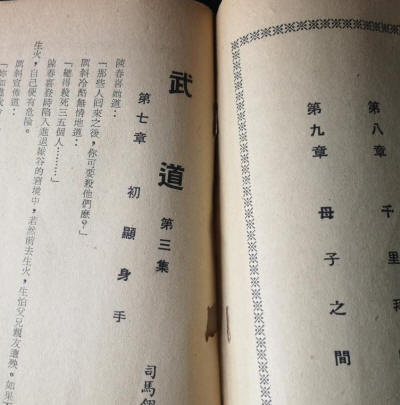 第八章 千里
第九章 母子之間
武道 第三集
司馬
第七章 初顯身手
陳春喜
「那些人回來之後,你可要殺他們麼?」
厲斜冷酷無情地道:
「總得殺死三五個人……」
陳春喜登時陷入進退維谷的窘境中,若然前去生火,生怕父兄親友遭殃。如果
生火,自己便有危險。
厲斜宣佈道: